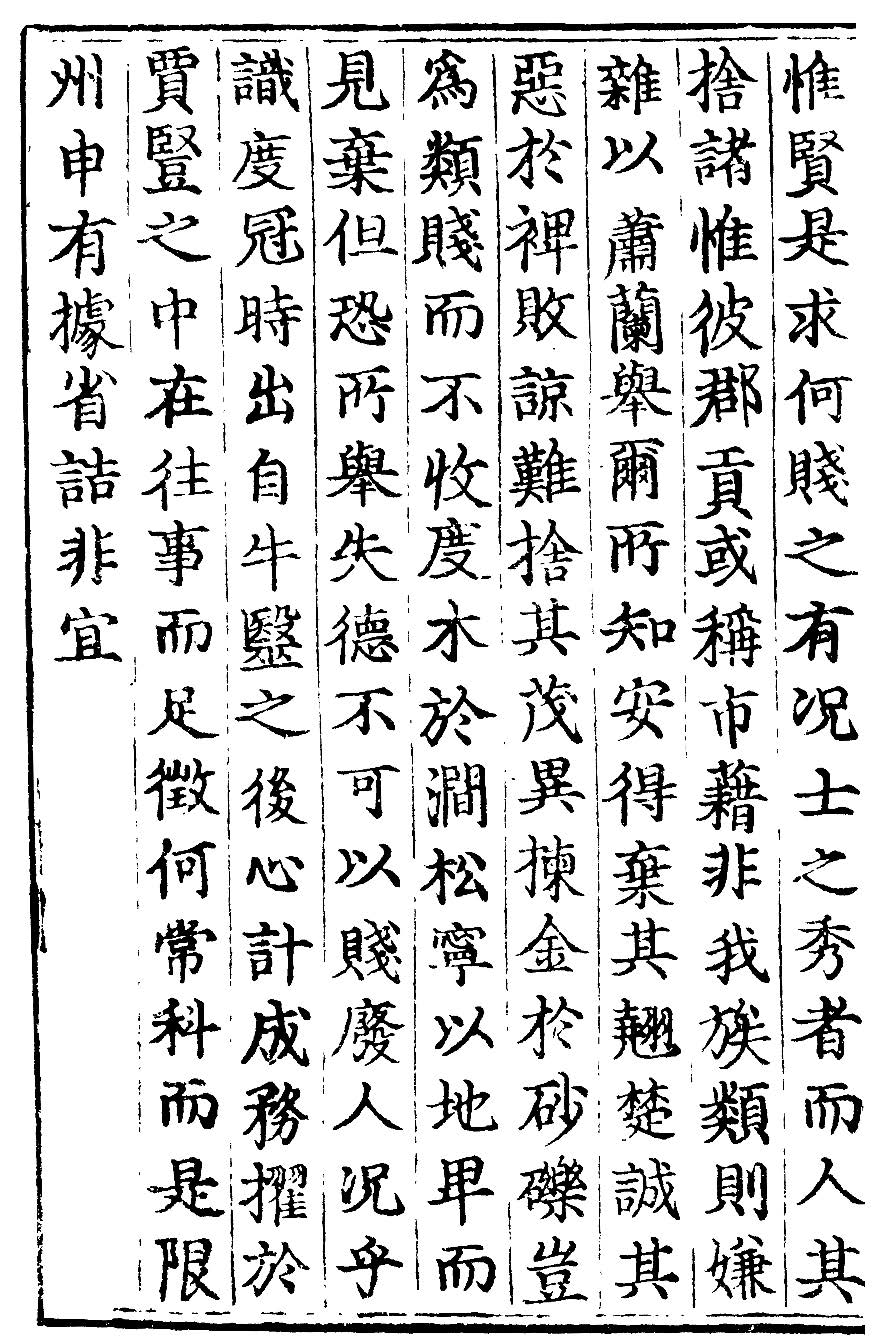 惟賢是求何賤之有况士之秀者而人其
捨諸惟彼郡貢或稱市藉非我族類則嫌
雜以蕭蘭舉爾所知安得棄其翹楚誠其
惡於裨敗諒難捨其茂異揀金於砂礫豈
爲類賤而不收度木於澗松寧以地卑而
見棄但恐所舉失德不可以賤廢人况乎
識度冠時出自牛毉之後心計成務擢於
賈豎之中在往事而足徵何常科而是限
州申有據省詰非宜